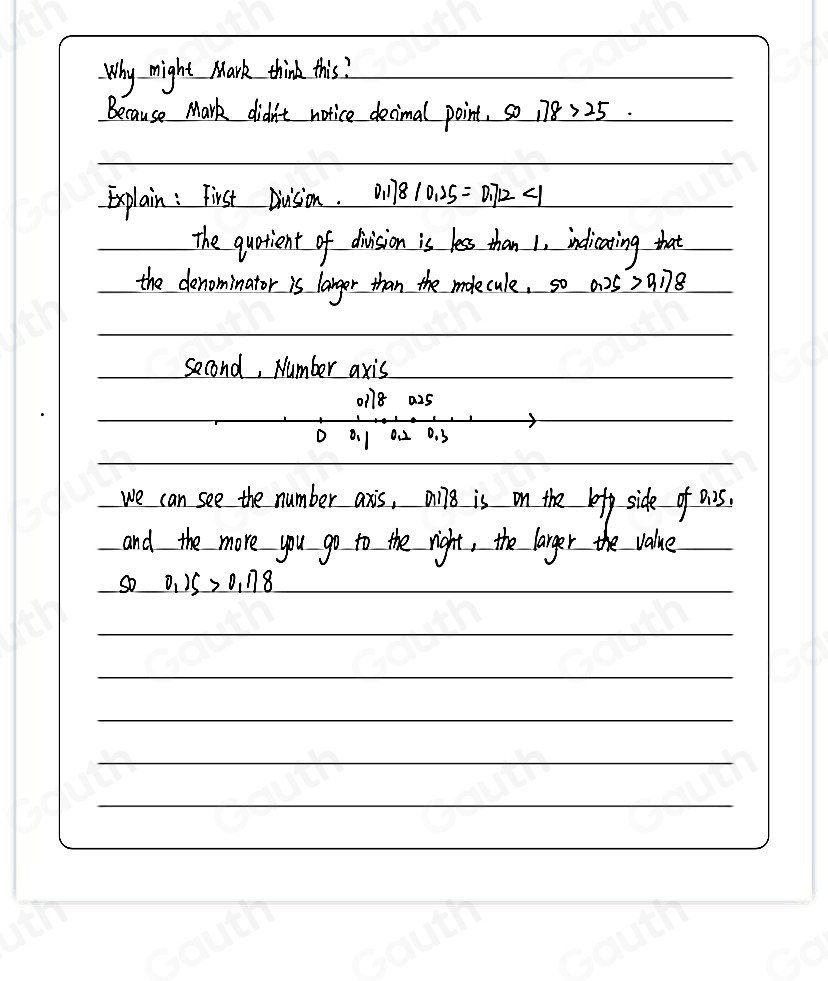 Why might Mark think this?
Because Mark didn't notice decimal point, so 178 > 25 .
Explain : First Division . 0.178 / 0.25 = 0.712 < 1
The quotient of division is less than 1, indicating that
the denominator is larger than the molecule, so 0.25 > 0.178
Second , Number axis
0.178 0.25
0 0.1 0.2 0.3
We can see the number axis, 0.178 is on the left side of 0.25,
and the more you go to the right, the larger the value
so 0.25 > 0.178
Gauth